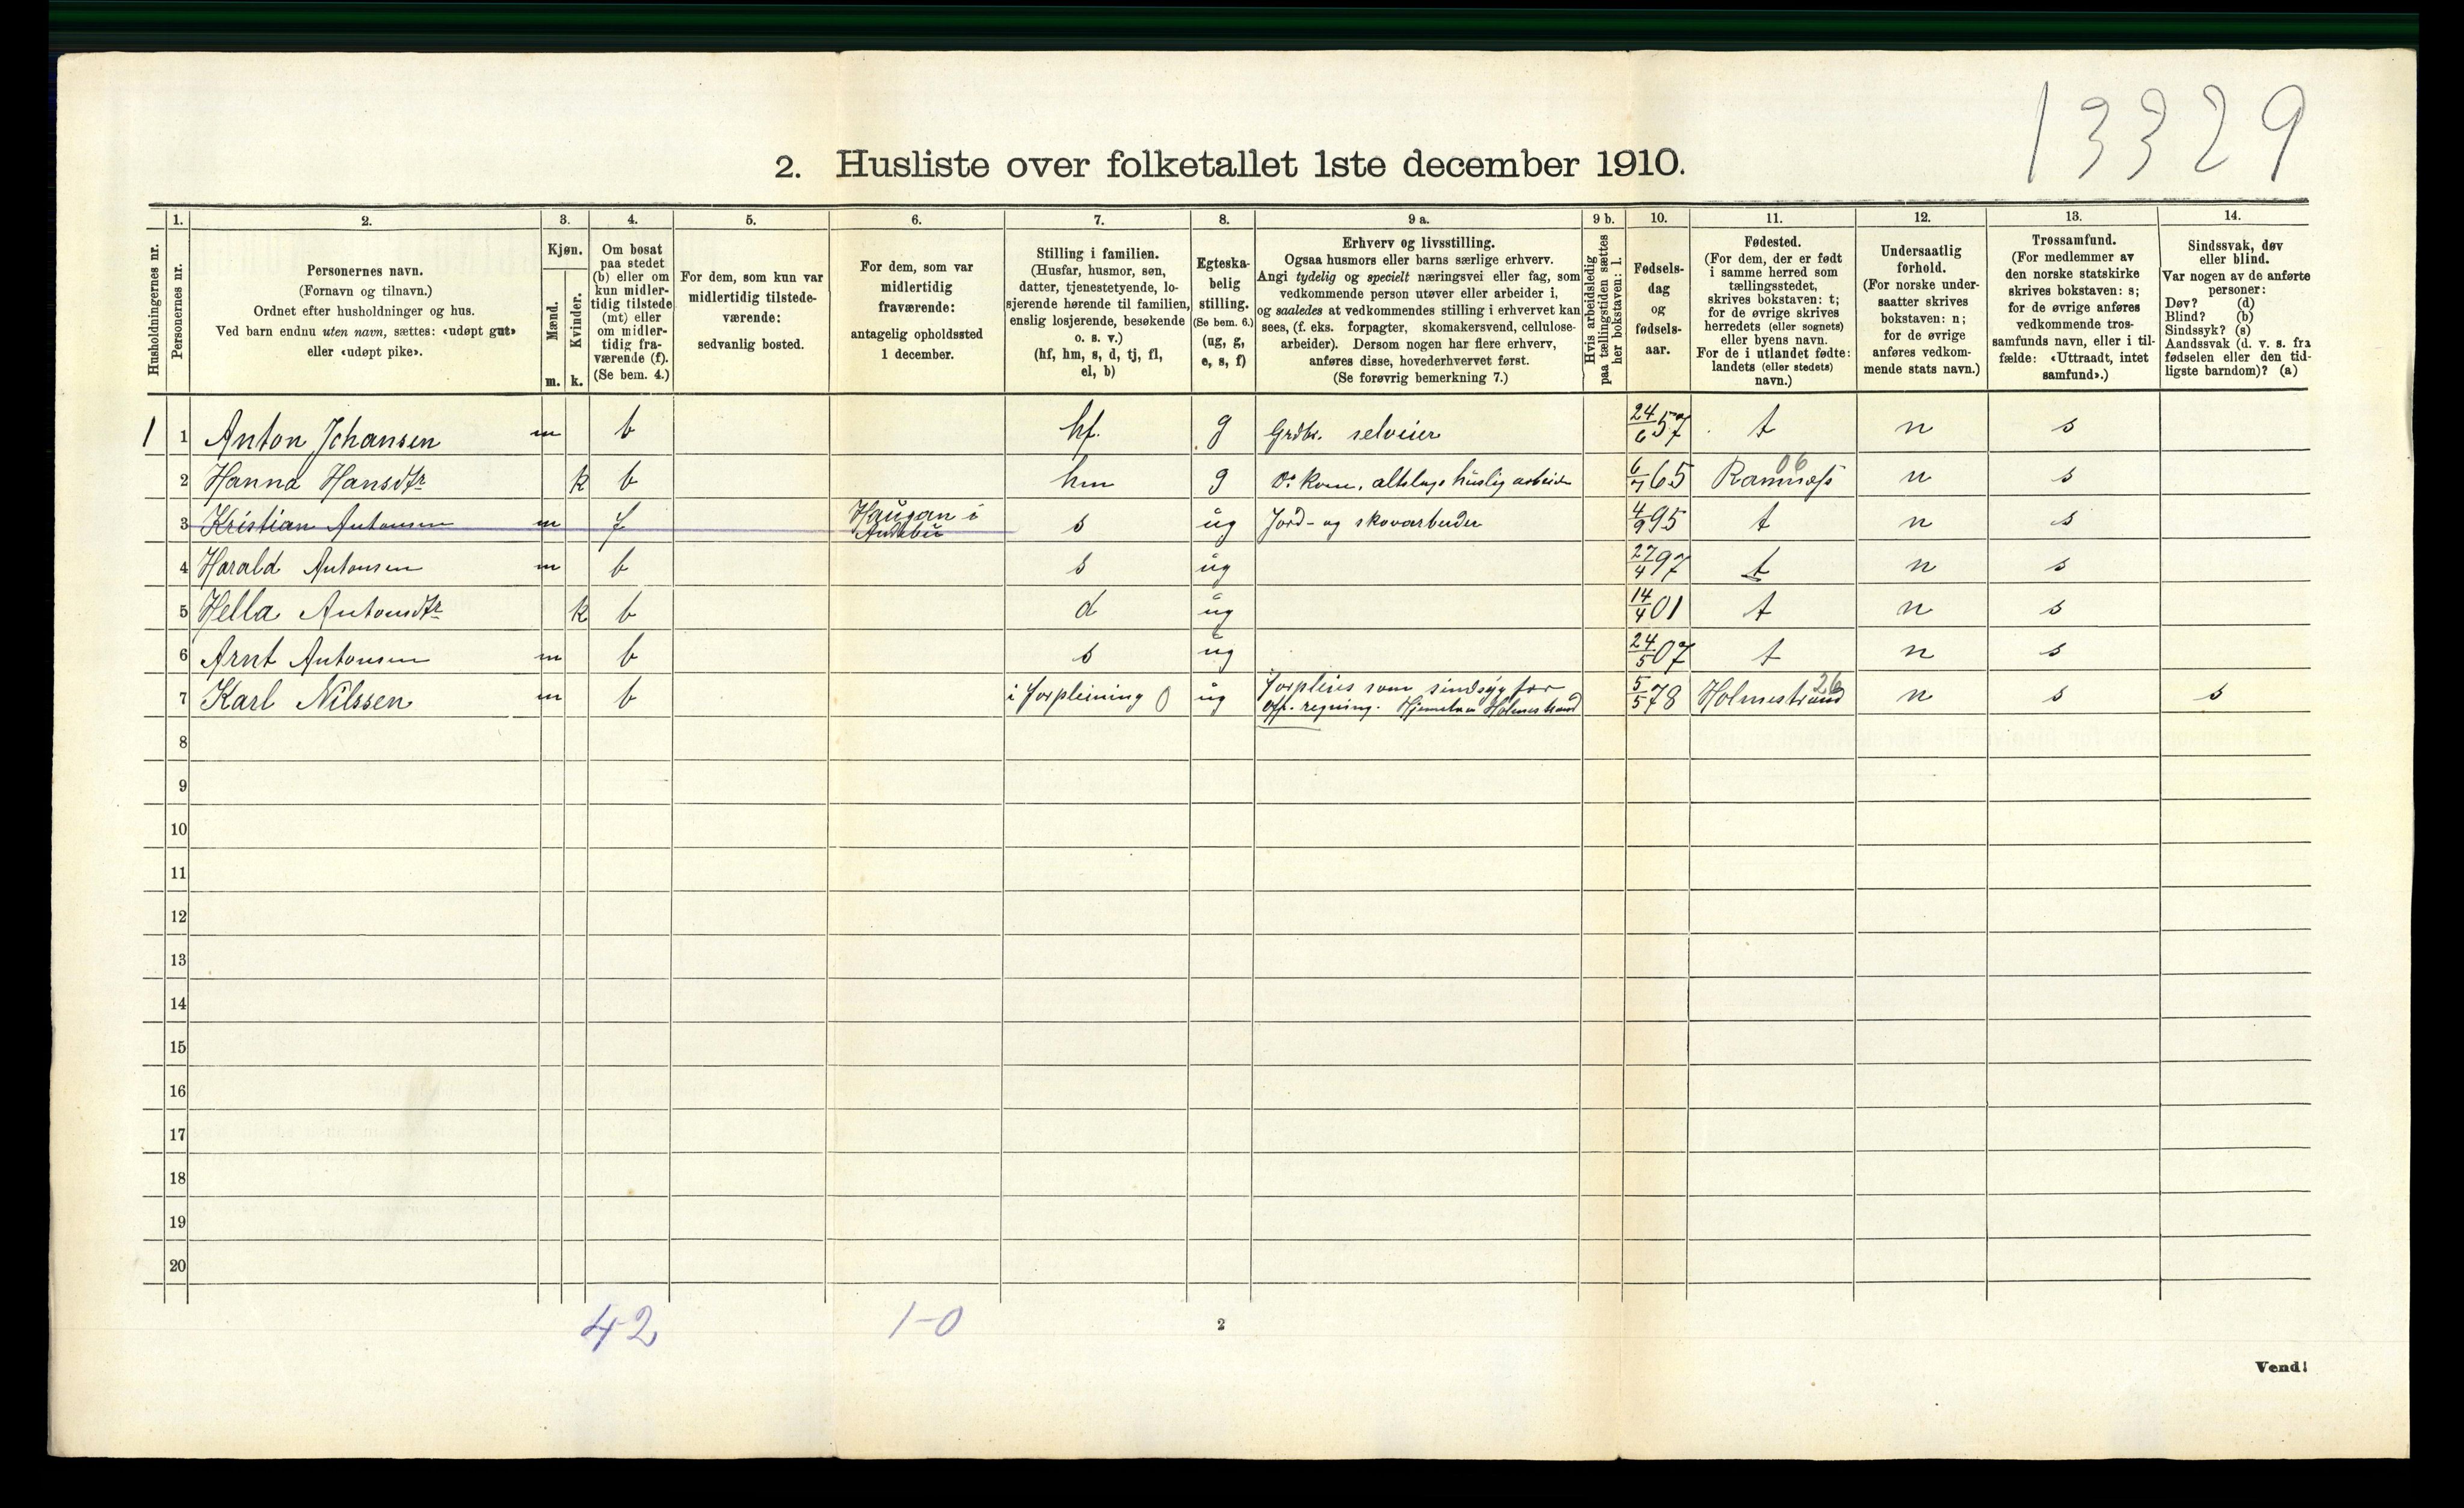 13329
2. Husliste over folketallet 1ste december 1910.
Husholdningernes nr.
1.
Personernes nr.
2.
Personernes navn.
(Fornavn og tilnavn.)
Ordnet efter husholdninger og hus.
Ved barn endnu uten navn, sættes: «udøpt gut»
eller «udøpt pike».
3.
Kjøn.
Mænd.
Kvinder.
m.
k.
4.
Om bosat
paa stedet
(b) eller om
kun midler-
tidig tilstede
(mt) eller
om midler-
tidig fra-
værende (f).
(Se bem. 4.)
5.
For dem, som kun var
midlertidig tilstede-
værende:
sedvanlig bosted.
6.
For dem, som var
midlertidig
fraværende:
antagelig opholdssted
1 december.
7.
Stilling i familien.
(Husfar, husmor, søn,
datter, tjenestetyende, lo-
sjerende hørende til familien,
enslig losjerende, besøkende
o. s. v.)
(hf, hm, s, d, tj, fl,
el, b)
8.
Egteska-
belig
stilling.
(Se bem. 6.)
(ug, g,
e, s, f)
9 a.
Erhverv og livsstilling.
Ogsaa husmors eller barns særlige erhverv.
Angi tydelig og specielt næringsvei eller fag, som
vedkommende person utøver eller arbeider i,
og saaledes at vedkommendes stilling i erhvervet kan
sees, (f. eks. forpagter, skomakersvend, cellulose-
arbeider). Dersom nogen har flere erhverv,
anføres disse, hovederhvervet først.
(Se forøvrig bemerkning 7.)
9 b.
Hvis arbeidsledig
paa tællingstiden sættes
her bokstaven: l.
10.
Fødsels-
dag
og
fødsels-
aar.
11.
Fødested.
(For dem, der er født
i samme herred som
tællingsstedet,
skrives bokstaven: t;
for de øvrige skrives
herredets (eller sognets)
eller byens navn.
For de i utlandet fødte:
landets (eller stedets)
navn.)
12.
Undersaatlig
forhold.
(For norske under-
saatter skrives
bokstaven: n;
for de øvrige
anføres vedkom-
mende stats navn.)
13.
Trossamfund.
(For medlemmer av
den norske statskirke
skrives bokstaven: s;
for de øvrige anføres
vedkommende tros-
samfunds navn, eller i til-
fælde: «Uttraadt, intet
samfund».)
14.
Sindssvak, døv
eller blind.
Var nogen av de anførte
personer:
Døv? (d)
Blind? (b)
Sindssyk? (s)
Aandssvak (d. v. s. fra
fødselen eller den tid-
ligste barndom)? (a)
1 1 Anton Johansen m b hf. g Grdbr. selveier 24/6 57 t n s
2 Hanna Hansdtr k b hm g Do kone, altslags huslig arbeide 6/7 65 Ramnæs 06 n s
3 Kristian Antonsen m f Haugan i Andebu s ug Jord- og skovarbeider 4/9 95 t n s
4 Harald Antonsen m b s ug 27/4 97 t n s
5 Hella Antonsdtr k b d ug 14/4 01 t n s
6 Arnt Antonsen m b s ug 24/5 07 t n s
7 Karl Nilssen m b i forpleining 0 ug Forpleies som sindsyg for
off. regning. Hjemsted Holmestrand 5/5 78 Holmestrand 26 n s s
8
9
10
11
12
13
14
15
16
17
18
19
20
42 1-0
2
Vend!